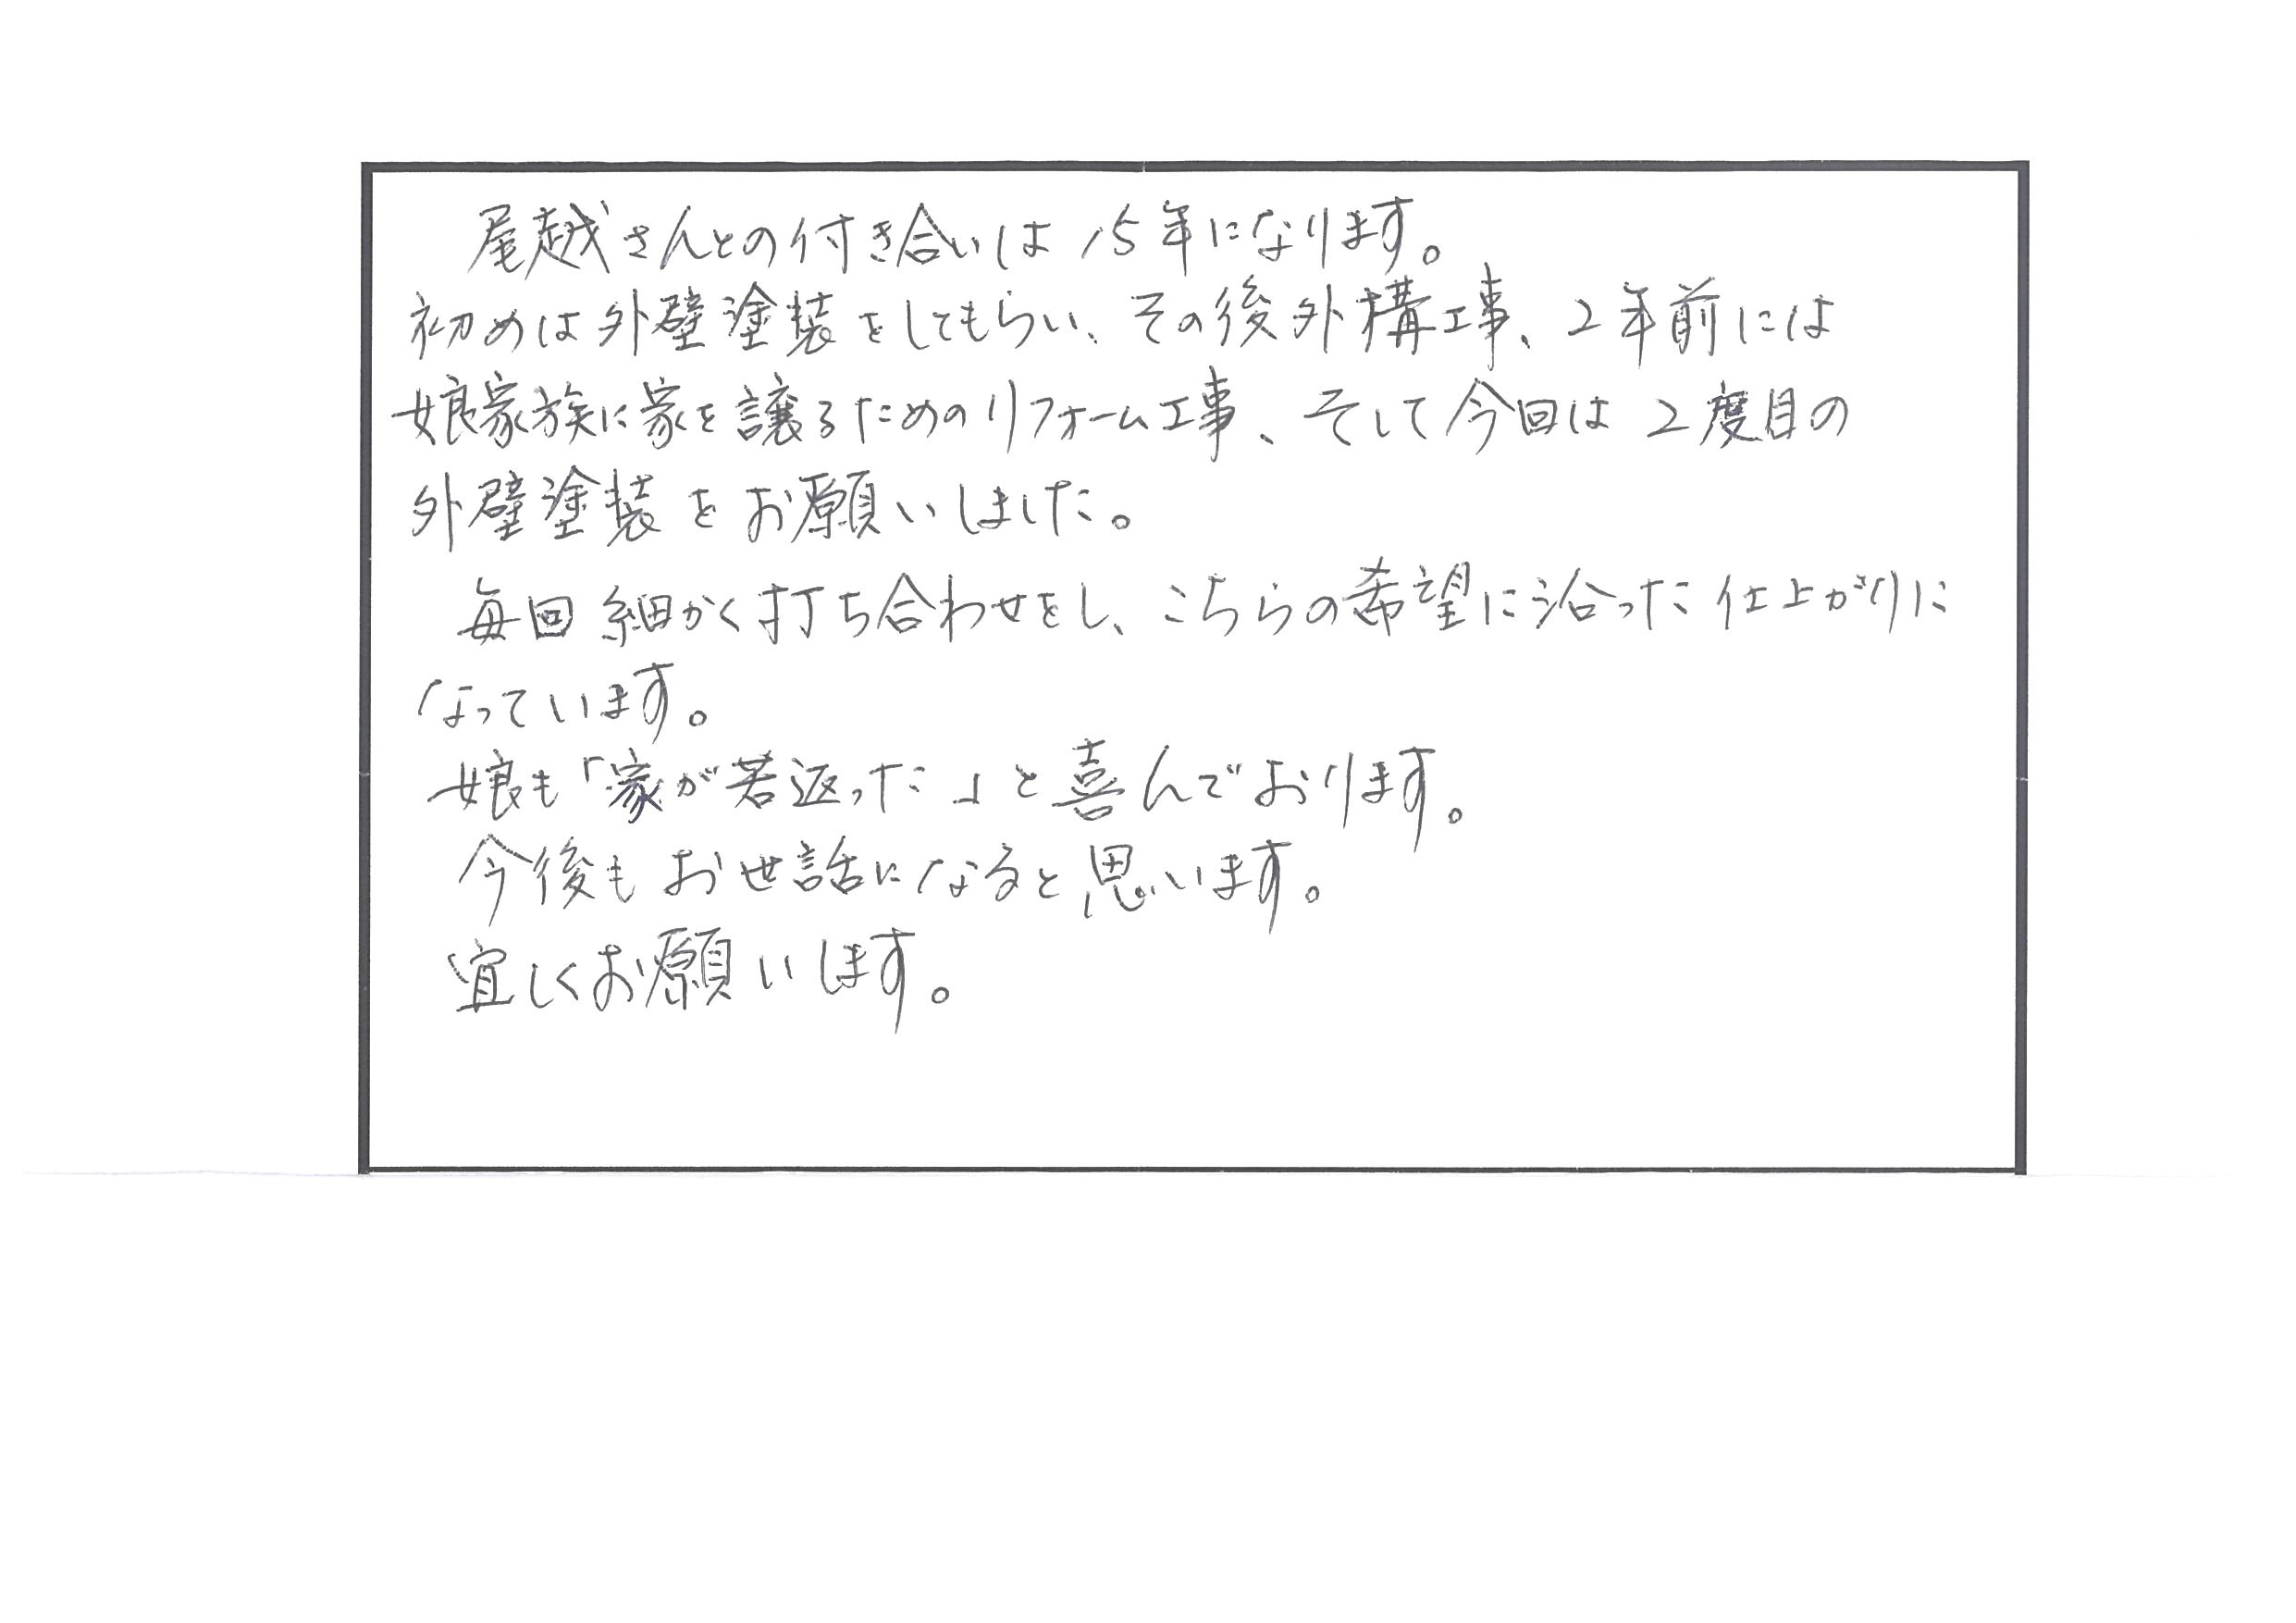 尾越さんとの付き合いは15年になります。
初めは外壁塗装をしてもらい、その後外構工事、2年前には
娘家族に家を譲るためのリフォーム工事、そして今回は2度目の
外壁塗装をお願いしました。
毎回細かく打ち合わせをし、こちらの希望に沿った仕上がりに
なっています。
娘も「家が若返った」と喜んでおります。
今後もお世話になると思います。
宜しくお願いします。